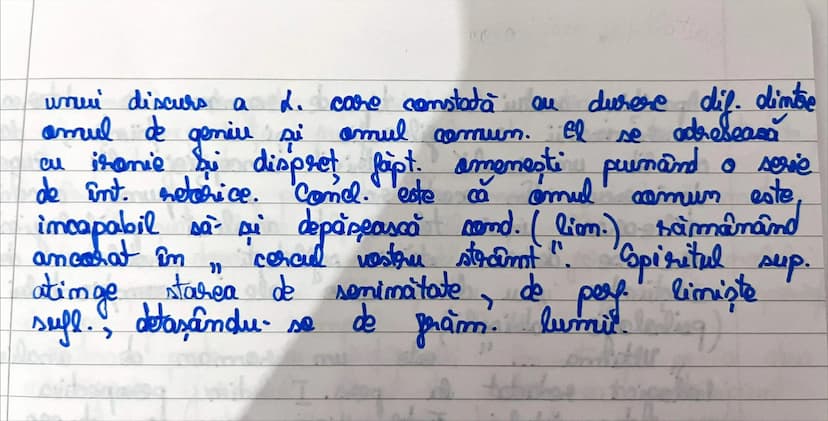 unui discurs a L. care constată cu durere dif. dintre
omul de geniu și omul comun. El se adresează
cu ironie și dispreț făpt. omenești punând o serie
de înt. retorice. Concl. este că omul comun este
incapabil să-și depășească cond. (lim.) rămânând
ancorat în „ cercul vostru strâmt ". Spiritul sup.
atinge starea de senimătate, de perf. liniște
sufl., detașându-se de frăm. lumii.